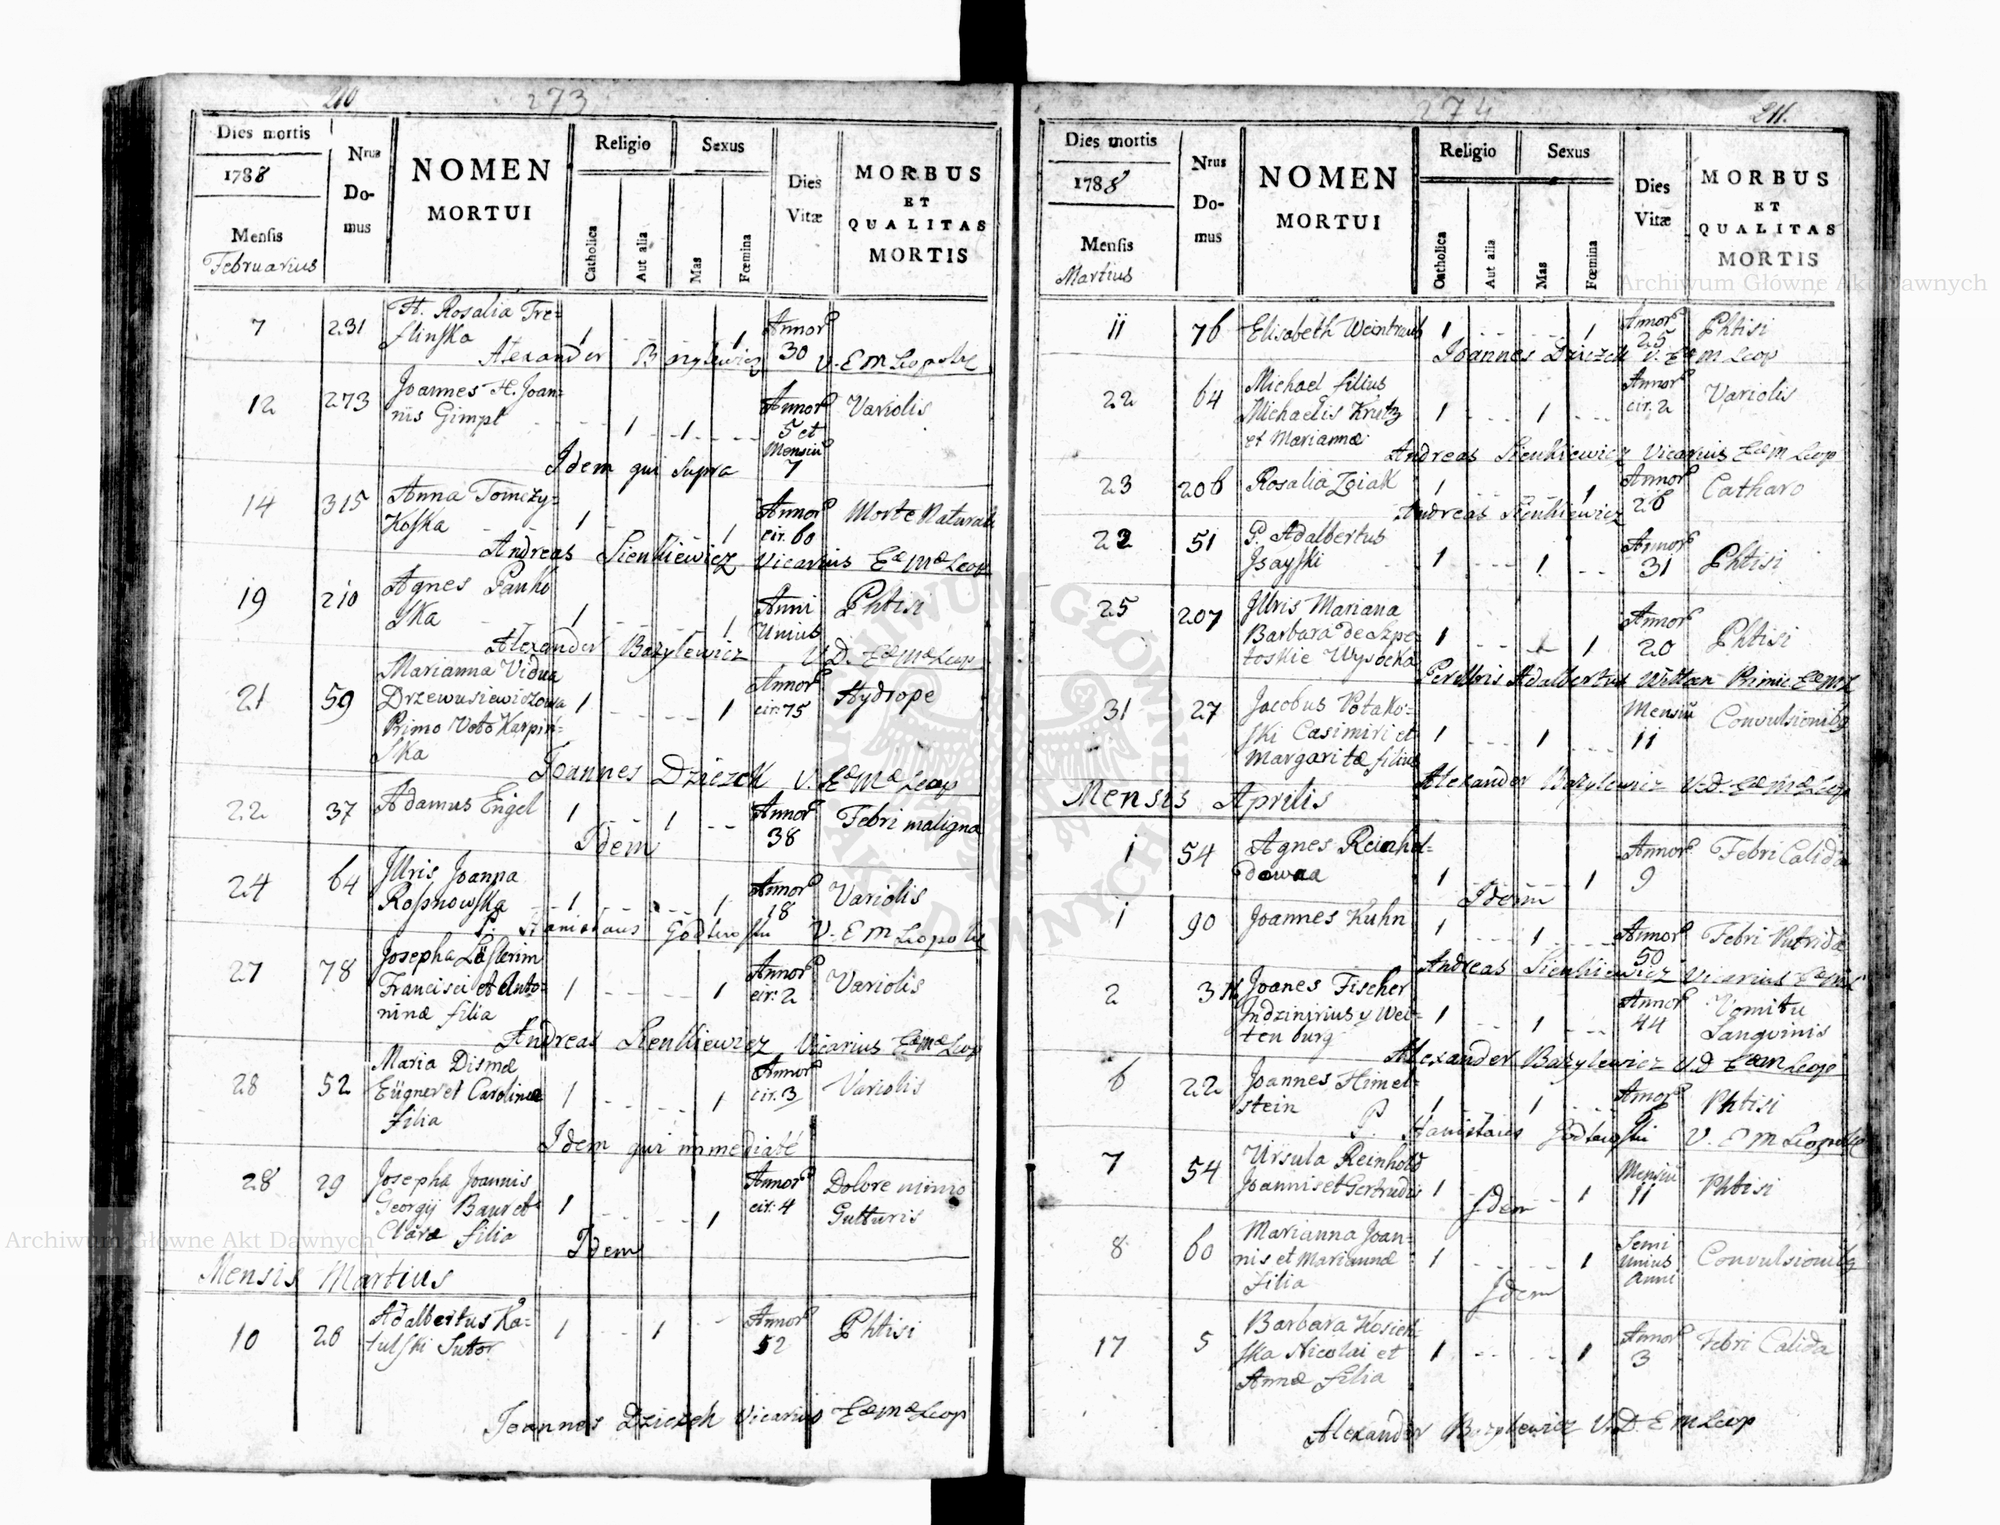 210
273
Dies mortis
1788
Mensis
Februarius
Nrus
Do-
mus
NOMEN
MORTUI
Religio
Catholica
Aut alia
Sexus
Mas
Fœmina
Dies
Vitæ
MORBUS
ET
QUALITAS
MORTIS
7 231 H. Rosalia Tre- 1 1 Annor
flinska 30
Alexander Bazylewicz V. E M Leopolis
12 273 Joannes H. Joan- Annor Variolis
nis Gimpl 1 1 5 et
Mensiu
7
Idem qui Supra
14 315 Anna Tomczy- Annor Morte Naturali
koska 1 1 cir. 60
Andreas Sienkiewicz Vicarius Eæ Mæ Leop
19 210 Agnes Panko Anni Phtisi
ska 1 1 Unius
Alexander Bazylewicz V.D. Eæ Mæ Leop
Marianna Vidua
21 59 Drzewusiewiczowa 1 1 Annor Hydrope
Primo Voto Karpin- cir: 75
ska
Joannes Dziezek V. Eæ Mæ Leop
22 37 Adamus Engel 1 1 Annor Febri maligna
38
Idem
24 64 Illris Joanna Annor Variolis
Rosnowska 1 1 18
P. Stanislaus Godlewski V. E M Leopolis
27 78 Josepha Annor
Francisci et Anto- 1 1 cir: 2 Variolis
ninæ filia
Andreas Sienkiewicz Vicarius Eæ Mæ Leop
Maria Dismæ Annor
28 52 Eügner et Carolinæ 1 1 cir. 3 Variolis
filia
Idem qui immediatè
28 29 Josepha Joannis Annor Dolore nimio
Georgij Baur et 1 1 cir: 4 Gutturis
Claræ filia
Idem
Mensis Martius
10 20 Adalbertus Ka- 1 1 Annor Phtisi
tulski Sutor 52
Joannes Dziezek Vicarius Eæ Mæ Leop
274
211.
Dies mortis
1788
Mensis
Martius
Nrus
Do-
mus
NOMEN
MORTUI
Religio
Catholica
Aut alia
Sexus
Mas
Fœmina
Dies
Vitæ
MORBUS
ET
QUALITAS
MORTIS
11 76 Elisabeth Weintraub 1 1 Annor Phtisi
25
Joannes Dziezek V. Eæ M Leop
22 64 Michael filius Annor Variolis
Michaelis Krutz 1 1 cir. 2
et Mariannæ
Andreas Sienkiewicz Vicarius Eæ M Leop
23 206 Rosalia 1 1 Annor Catharo
26
Andreas Sienkiewicz
22 51 P. Adalbertus Annor Phtisi
Jsayski 1 1 31
25 207 Illris Mariana Annor
Barbara de Szpe- 1 1 20 Phtisi
toskie Wysocka
Perillris Adalbertus Wittan
31 27 Jacobus Potako- Mensiu Convulsionibq
ski Casimiri et 1 1 11
Margaritæ filius
Alexander Bazylewicz V.D. Eæ Mæ Leop
Mensis Aprilis
1 54 Agnes Reinhol- Annor Febri Calida
downa 1 1 9
Idem
1 90 Joannes Kuhn 1 1 Annor Febri Putrida
50
Andreas Sienkiewicz Vicarius Eæ M L
2 Joanes Fischer Annor Vomitu
Indzinirius y Wei- 1 1 44 Sangvinis
ten burg
Alexander Bazylewicz V.D Eæ M Leop
6 22 Joannes Himel- Annor Phtisi
stein 1 1
P. Stanislaus Godlewski V. E M Leopolis
7 54 Ursula Reinhold Mensiu Phtisi
Joannis et Gertrudis 1 1 11
Idem
8 60 Marianna Joan- Semi
nis et Mariannæ 1 1 Unius Convulsionibq
filia Anni
Idem
17 5 Barbara Kosieh- Annor Febri Calida
ska Nicolai et 1 1 3
Annæ filia
Alexander Bazylewicz V.D. E M Leop
Archiwum Główne Akt Dawnych
Archiwum Główne Akt Dawnych
ARCHIWUM GŁÓWNE AKT DAWNYCH